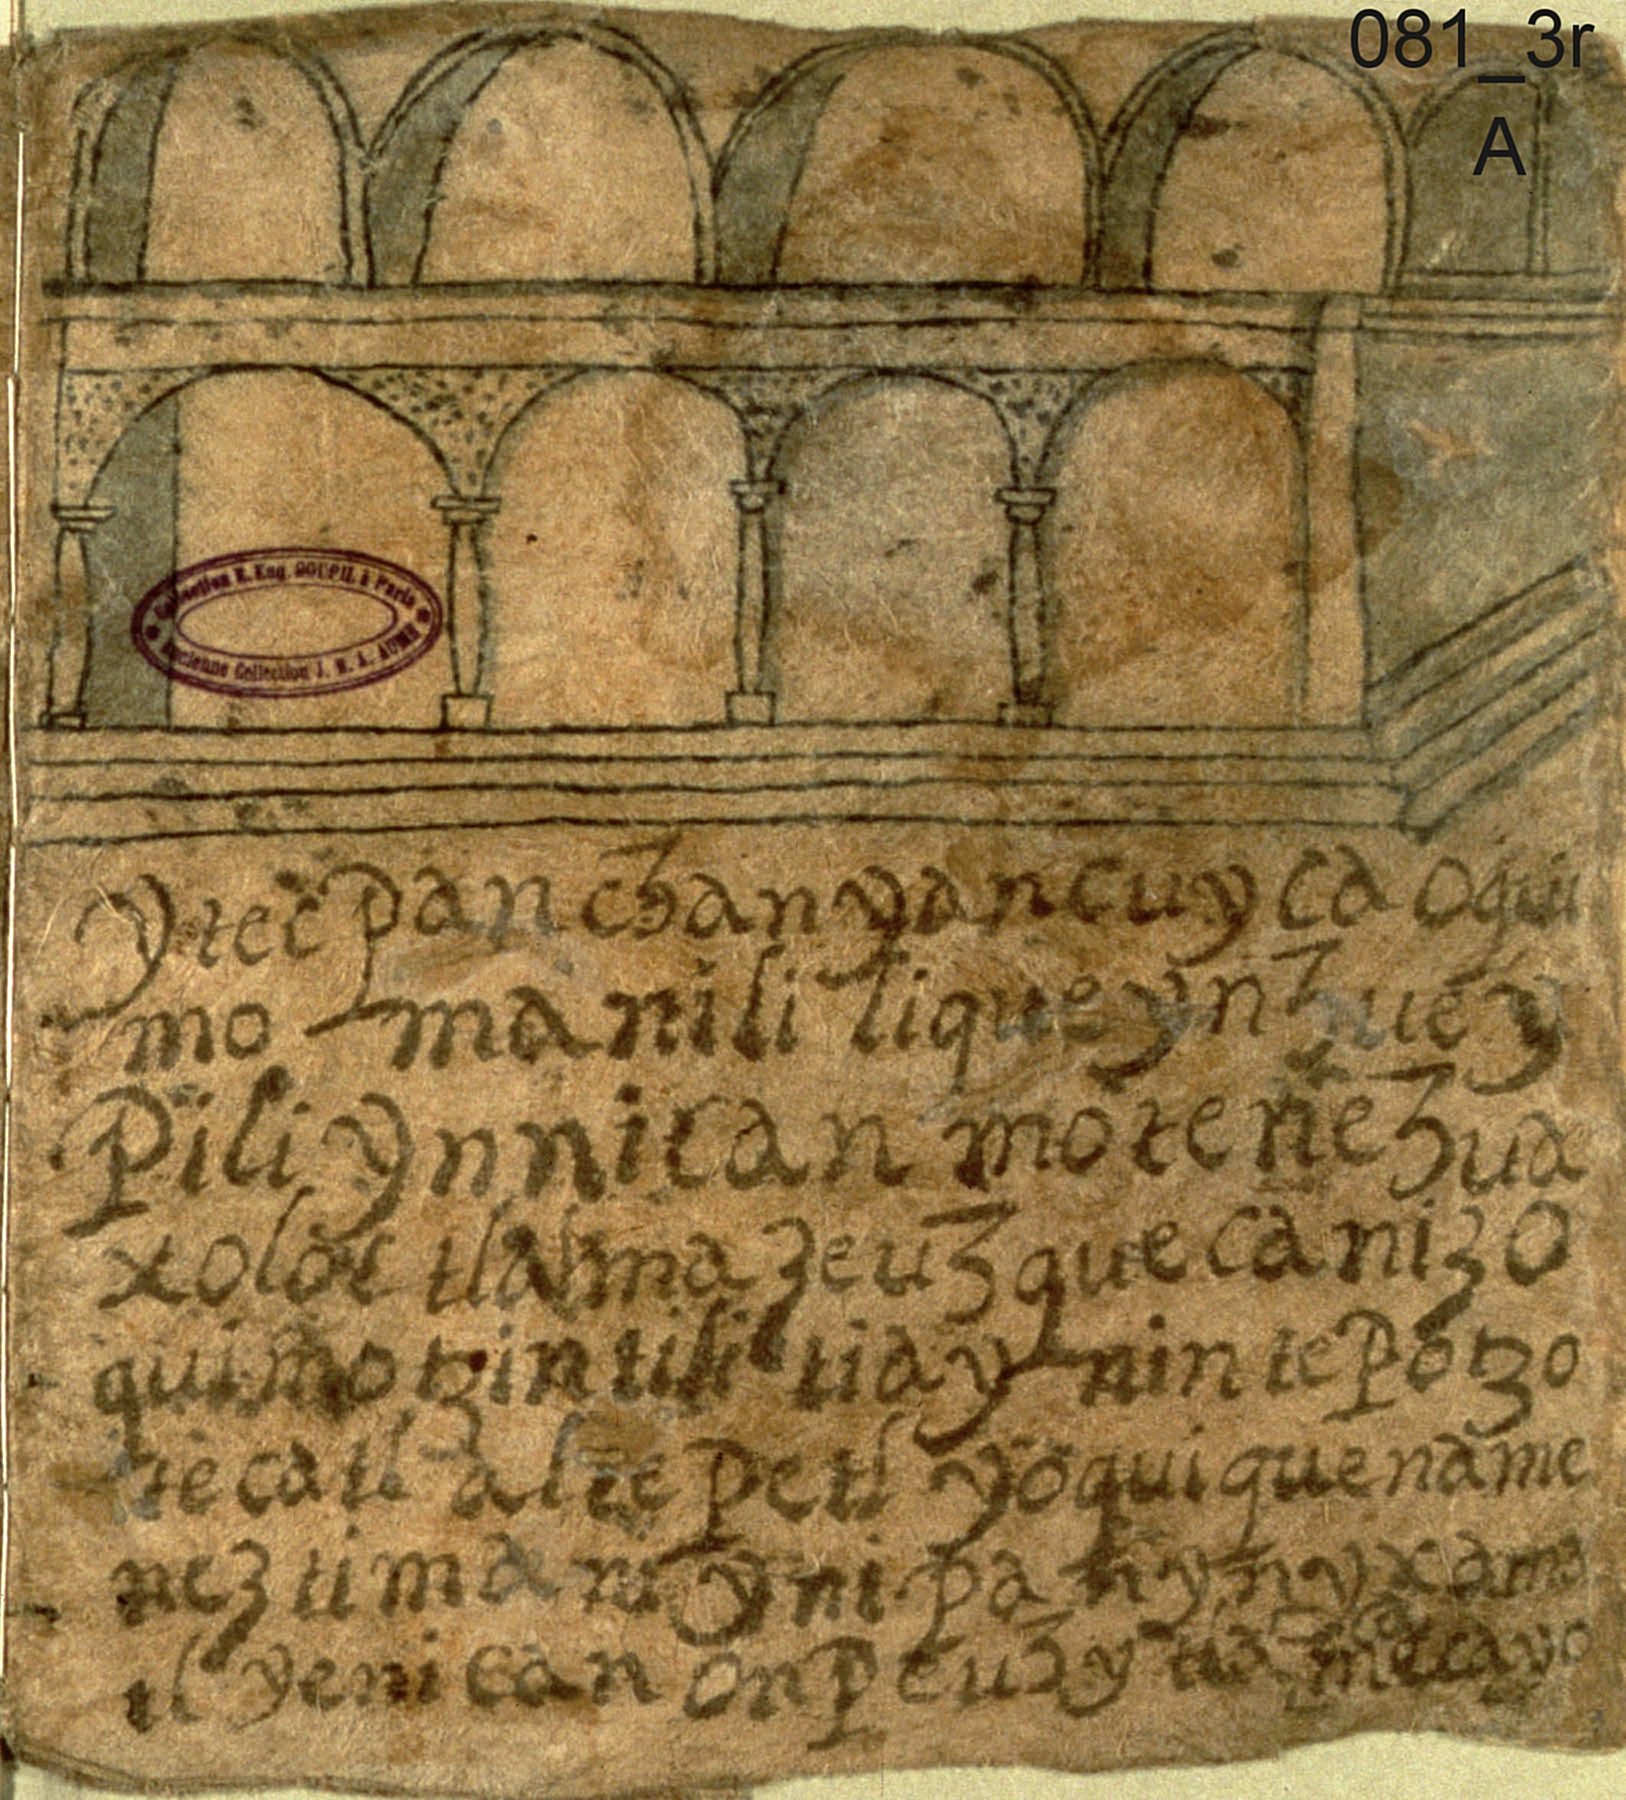 081_3r
A
Collection E. Eug. GOUPIL à Paris
Ancienne Collection J. M. A. AUBIN
ytec pan chan yancuyca oqui
mo manili lique yn huey
Pili ynnican motenehua
xoloc tlalmazeuhque canizo
quimotzintilitia y nintepotzo
tecatl altepetl yoqui quename
neztimani yni pan yn yxama
tl yenican onpeuhy tla mecayo